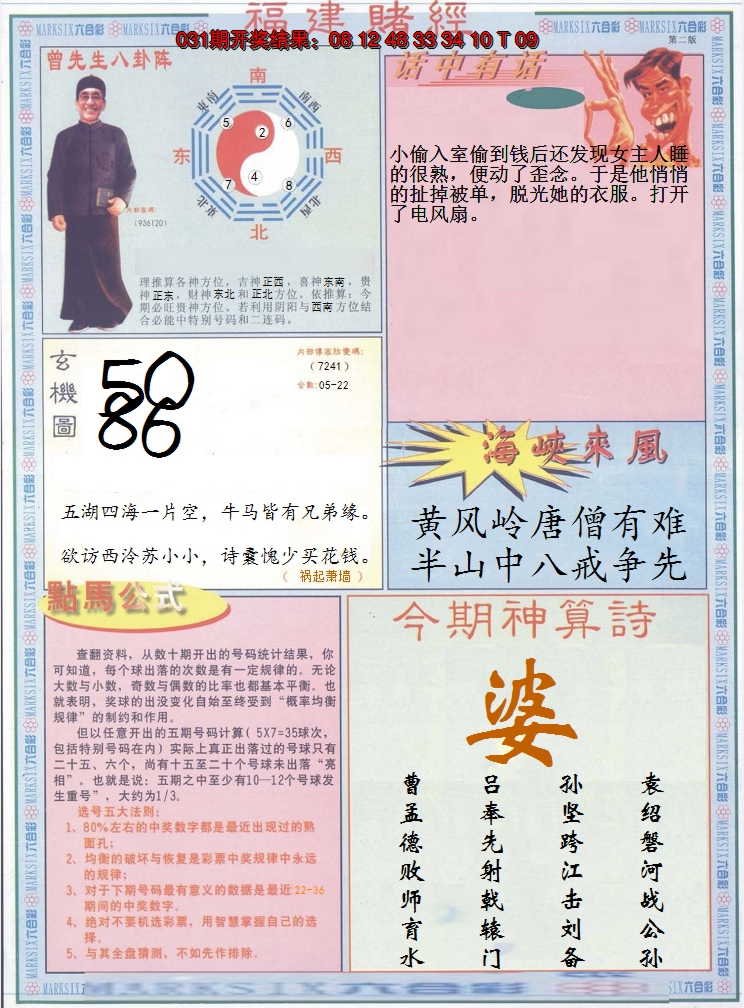 福建賭經
031期开奖结果：08 12 48 33 34 10 T 09
MARKSIX六合彩
第二版
曾先生八卦阵
南
東南
南西
5
2
6
东
西
7
4
8
東北
北西
北
內部密碼:
(936120)
理推算各神方位，吉神正西，喜神东南，贵
神正东，财神东北和正北方位。依推算：今
期必旺贵神方位。若利用阴阳与西南方位结
合必能中特别号码和二连码。
话中有话
小偷入室偷到钱后还发现女主人睡
的很熟，便动了歪念。于是他悄悄
的扯掉被单，脱光她的衣服。打开
了电风扇。
玄機圖
50
86
(7241)
合数:05-22
五湖四海一片空，牛马皆有兄弟缘。
欲访西泠苏小小，诗囊愧少买花钱。
（ 祸起萧墙 ）
海峽來風
黄风岭唐僧有难
半山中八戒争先
點馬公式
查翻资料，从数十期开出的号码统计结果，你
可知道，每个球出落的次数是有一定规律的。无论
大数与小数，奇数与偶数的比率也都基本平衡。也
就表明，奖球的出没变化自始至终受到“概率均衡
规律”的制约和作用。
但以任意开出的五期号码计算（5X7=35球次，
包括特别号码在内）实际上真正出落过的号球只有
二十五、六个，尚有十五至二十个号球未出落“亮
相”。也就是说：五期之中至少有10—12个号球发
生重号”，大约为1/3。
选号五大法则：
1、80%左右的中奖数字都是最近出现过的熟
面孔；
2、均衡的破坏与恢复是彩票中奖规律中永远
的规律；
3、对于下期号码最有意义的数据是最近22-36
期间的中奖数字。
4、绝对不要机选彩票，用智慧掌握自己的选
择。
5、与其全盘猜测，不如先作排除。
今期神算詩
婆
曹孟德败师育水
吕奉先射戟辕门
孙坚跨江击刘备
袁绍磐河战公孙